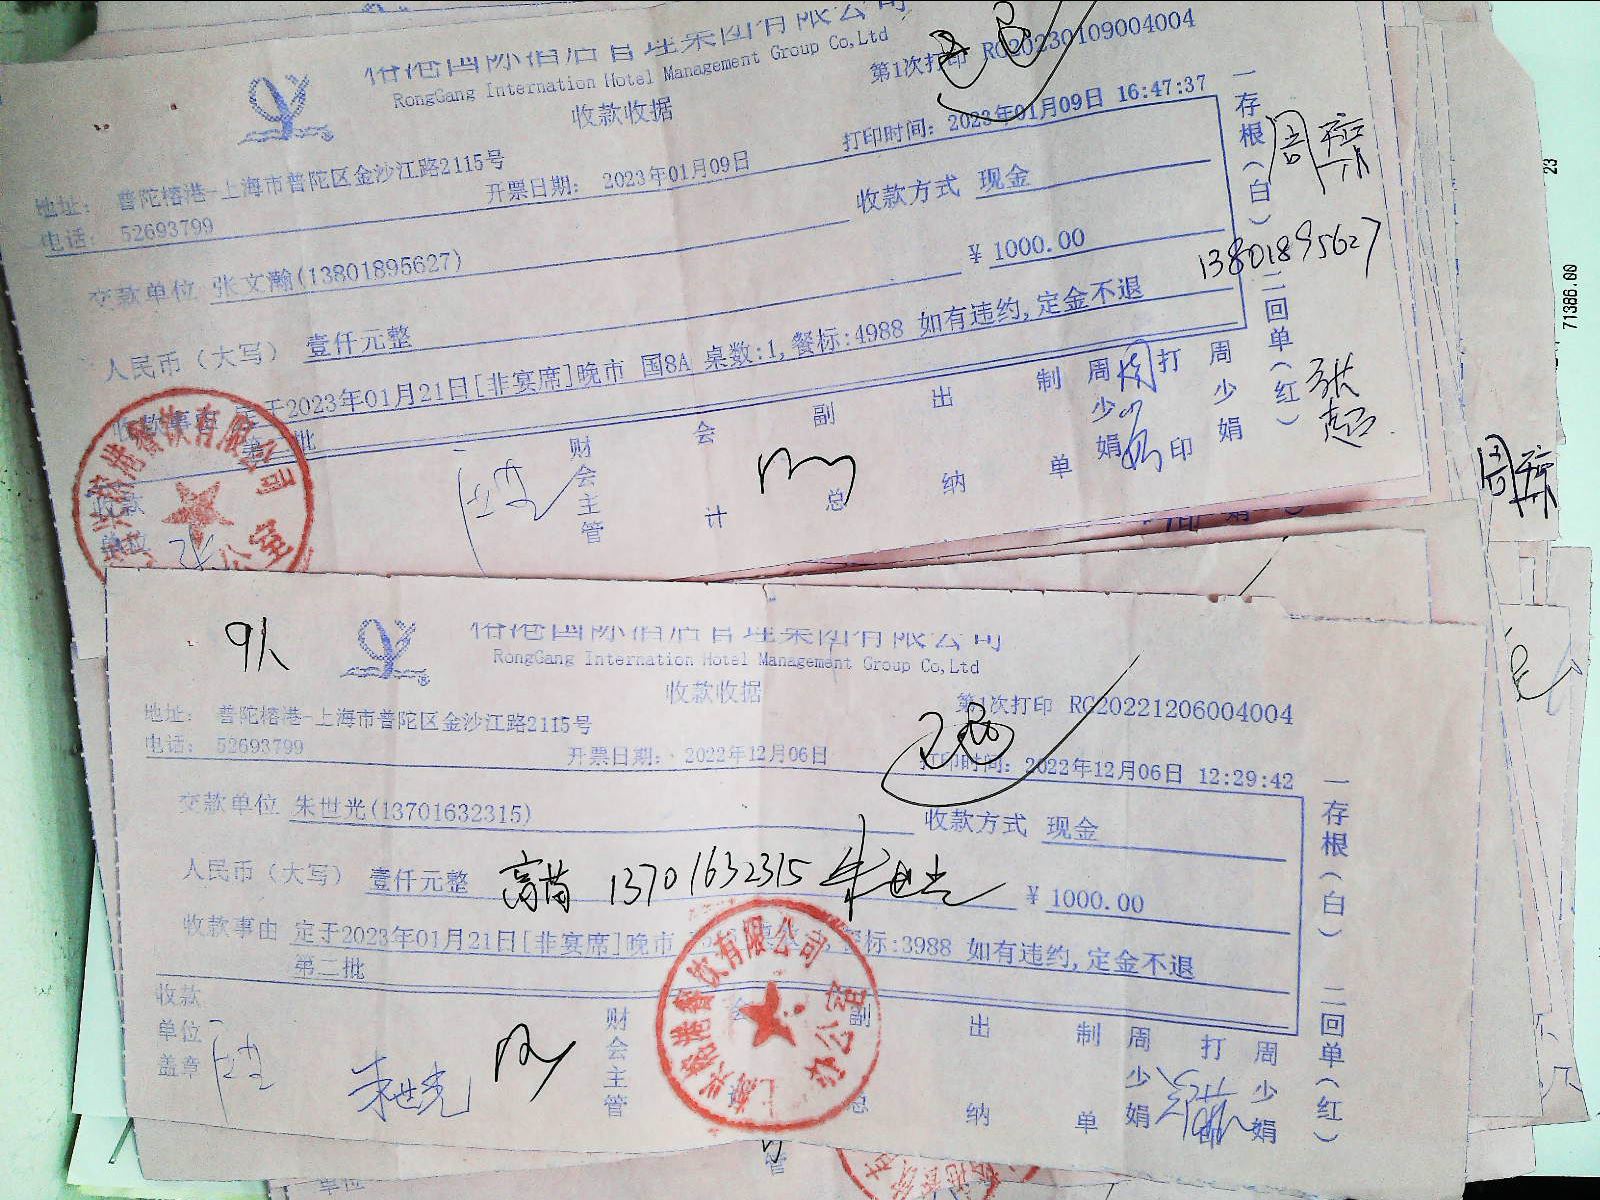 榕港国际酒店管理集团有限公司
RongGang Internation Hotel Management Group Co,Ltd
收款收据
第1次打印 RC20230109004004
地址： 普陀榕港-上海市普陀区金沙江路2115号
电话： 52693799
开票日期： 2023年01月09日
打印时间：2023年01月09日 16:47:37
交款单位 张文瀚(13801895627)
收款方式 现金
人民币（大写） 壹仟元整
¥ 1000.00
收款事由 定于2023年01月21日[非宴席]晚市 国8A 桌数:1,餐标:4988 如有违约,定金不退
第二批
收款
单位
财会主管
会计
副总
出纳
制单
周少娟
打印
周少娟
一存根（白）
二回单（红）
周琼
13801895627
张超
71386.00
23
周琼
9人
榕港国际酒店管理集团有限公司
RongGang Internation Hotel Management Group Co,Ltd
收款收据
第1次打印 RC20221206004004
地址： 普陀榕港-上海市普陀区金沙江路2115号
电话： 52693799
开票日期： 2022年12月06日
打印时间：2022年12月06日 12:29:42
交款单位 朱世光(13701632315)
收款方式 现金
人民币（大写） 壹仟元整
13701632315 朱世光
¥ 1000.00
收款事由 定于2023年01月21日[非宴席]晚市 餐标:3988 如有违约,定金不退
第二批
收款
单位
盖章
朱世光
财会主管
副总
出纳
制单
周少娟
打
周少娟
一存根（白）
二回单（红）
上海兴榕港餐饮有限公司
办公室